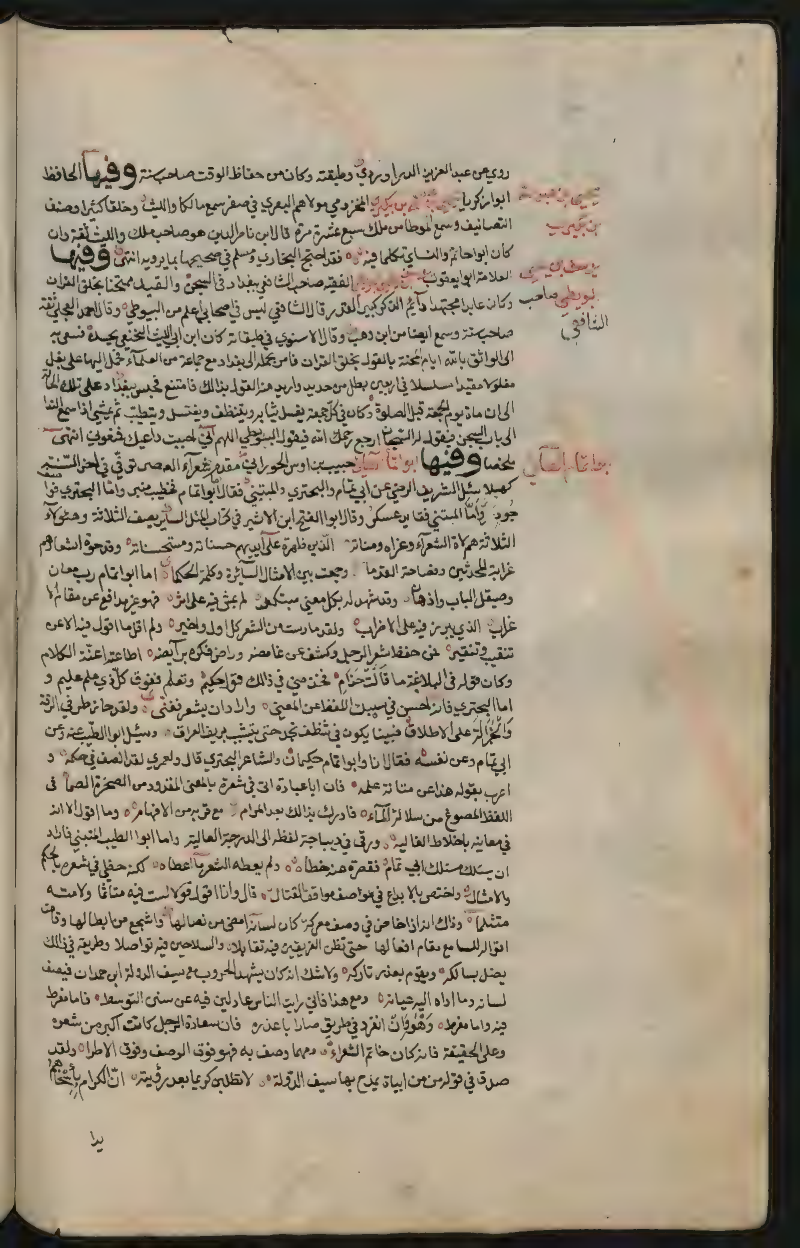 روى عن عبد العزيز الدراوردي وطبقته وكان من حفاظ الوقت صاحب سنة وفيها الحافظ
ابو زكريا يحيى بن بكير المخزومي مولاهم المصري في صفر سمع مالكا والليث وخلقا كثيرا وصنف
التصانيف وسمع الموطا من ملك سبع عشرة مرة قال ابن ناصر الدين هو صاحب ملك والليث ثقة وان
كان ابو حاتم والنساي تكلما فيه فقد احتج البخاري ومسلم في صحيحهما بما يرويه انتهى وفيها
العلامة ابو يعقوب الفقيه صاحب الشافعي ببغداد في السجن والقيد ممتحنا بخلق القران
وكان عابدا مجتهدا دايم الذكر كبير القدر قال الشافعي ليس في اصحابي اعلم من البويطي وقال احمد العجلي ثقة
صاحب سنة وسمع ايضا من ابن وهب وقال الاسنوي في طبقاته كان ابن ابي الليث الحنفي يحسده فسعى به
الى الواثق بالله ايام المحنة بالقول بخلق القران فامر بحمله الى بغداد مع جماعة من العلماء فحمل اليها على بغل
مغلولا مقيدا مسلسلا في اربعين رطل من حديد واريد منه القول بذالك فامتنع فحبس ببغداد على تلك الحالة
الى ان مات يوم الجمعة قبل الصلوة وكان في كل جمعة يغسل ثيابه ويتنظف ويغتسل ويتطيب ثم يمشي اذا سمع الندا
الى باب السجن فيقول له السجان ارجع رحمك الله فيقول البويطي اللهم اني اجبت داعيك فمنعوني انتهى
ملخصا وفيها ابو تمام الطائي حبيب بن اوس الحوراني مقدم شعراء العصر توفي في اخر السنة
كهلا سئل الشريف الرضي عن ابي تمام والبحتري والمتنبي فقال اما ابو تمام فخطيب منبر واما البحتري فواصف
جوذر واما المتنبي فقايد عسكر وقال ابو الفتح ابن الاثير في كتاب المثل الساير يصف الثلاثة وهؤلاء
الثلاثة هم لات الشعر وعزاه ومناته الذين ظهرت على ايديهم حسناته ومستحسناته وقد حوت اشعارهم
غرابة المحدثين وفصاحة القدما وجمعت بين الامثال السايرة وحكمة الحكما اما ابو تمام رب معان
وصيقل الباب واذهان وقد شهد له بكل معنى مبتكر لم يمش فيه على اثر فهو غير مدافع عن مقام الا
غراب الذي يبرز فيه على الاضراب ولقد مارست من الشعر كل اول واخير ولم اقل ما اقول فيه الا عن
تنقيب وتنقير فمن حفظ شعر الرجل وكشف عن غامضه وراض فكره برايضه اطاعته اعنة الكلام
وكان قوله في البلاغة ما قالت حذام فخذ مني في ذالك قول حكيم وتعلم ففوق كل ذي علم عليم و
اما البحتري فانه احسن في سبك اللفظ على المعنى واراد ان يشعر فغنى ولقد حاز طرفي الرقة
والجزالة على الاطلاق فبينا يكون في شظف نجد حتى يتشبث بريف العراق وسئل ابو الطيب عنه وعن
ابي تمام وعن نفسه فقال انا وابو تمام حكيمان والشاعر البحتري قال ولعمري لقد انصف في حكمه و
اعرب بقوله هذا عن متانة علمه فان ابا عبادة اتى في شعره بالمعنى المقدود من الصخرة الصما في
اللفظ المصوغ من سلاسة الماء فادرك بذالك بعد المرام مع قربه من الافهام وما اقول الا انه
في معانيه باخلاط الغالية ورقى في ديباجة لفظه الى الدرجة العالية واما ابو الطيب المتنبي فاراد
ان يسلك مسلك ابي تمام فقصرت عنه خطاه ولم يعطه الشعر ما اعطاه لكنه حظي في شعره بالحكم
والامثال واختص بالابداع في مواصف مواقف القتال قال وانا اقول قولا لست فيه متاثما ولا منه
متلثما وذاك انه اذا خاض في وصف معركة كان لسانه امضى من نصالها واشجع من ابطالها وقامت
اقواله للسامع مقام افعالها حتى تظن الفريقين فيه تقابلا والسلاحين فيه تواصلا وطريقه في ذالك
يضل بسالكه ويقوم بعذر تاركه ولا شك انه كان يشهد الحروب مع سيف الدولة ابن حمدان فيصف
لسانه وما اداه اليه عيانه ومع هذا فاني رايت الناس عادلين فيه عن سنن التوسط فاما مفرط
فيه واما مفرط وهو وان انفرد في طريق صار ابا عذره فان سعادة الرجل كانت اكبر من شعره
وعلى الحقيقة فانه كان خاتم الشعراء ومهما وصف به فهو فوق الوصف وفوق الاطراء ولقد
صدق في قوله من من ابيات يمدح بها سيف الدولة لا تطلبن كريما بعد رؤيته ان الكرام باسخاهم
يدا
بن بكير
يوسف بن يحيى
البويطي صاحب
الشافعي
ابو تمام الطائي